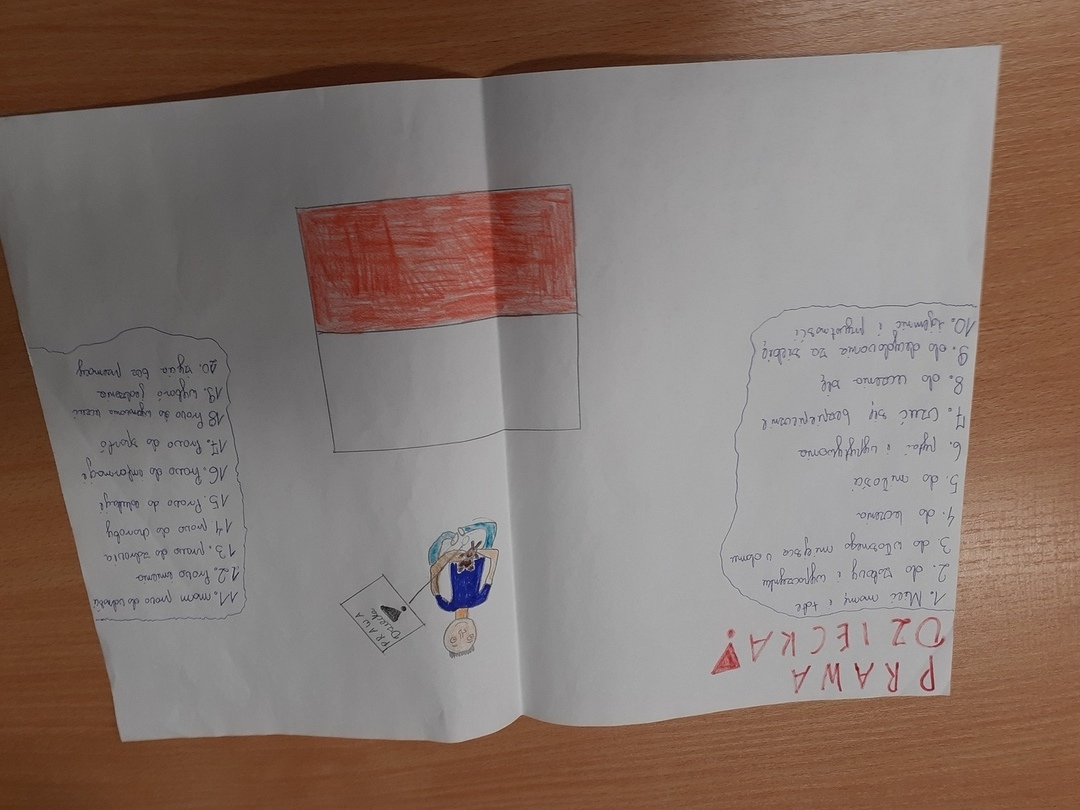 PRAWA
DZIECKA!
1. Mieć mamę i tatę
2. do zabawy i wypoczynku
3. do własnego miejsca w domu
4. do leczenia
5. do miłości
6. pytać i
7. czuć się bezpiecznie
8. do uczenia się
9. do decydowania za siebie
10. tajemnic i prywatności
PRAWA
Dziecka
!
11. mam prawo do
12. Prawo imienia
13. prawo do zdrowia
14 prawo do choroby
15. Prawo do edukacji
16. Prawo do informacji
17. Prawo do sportó
18 Prawo do uczuć
19.
20. życia bez przemocy